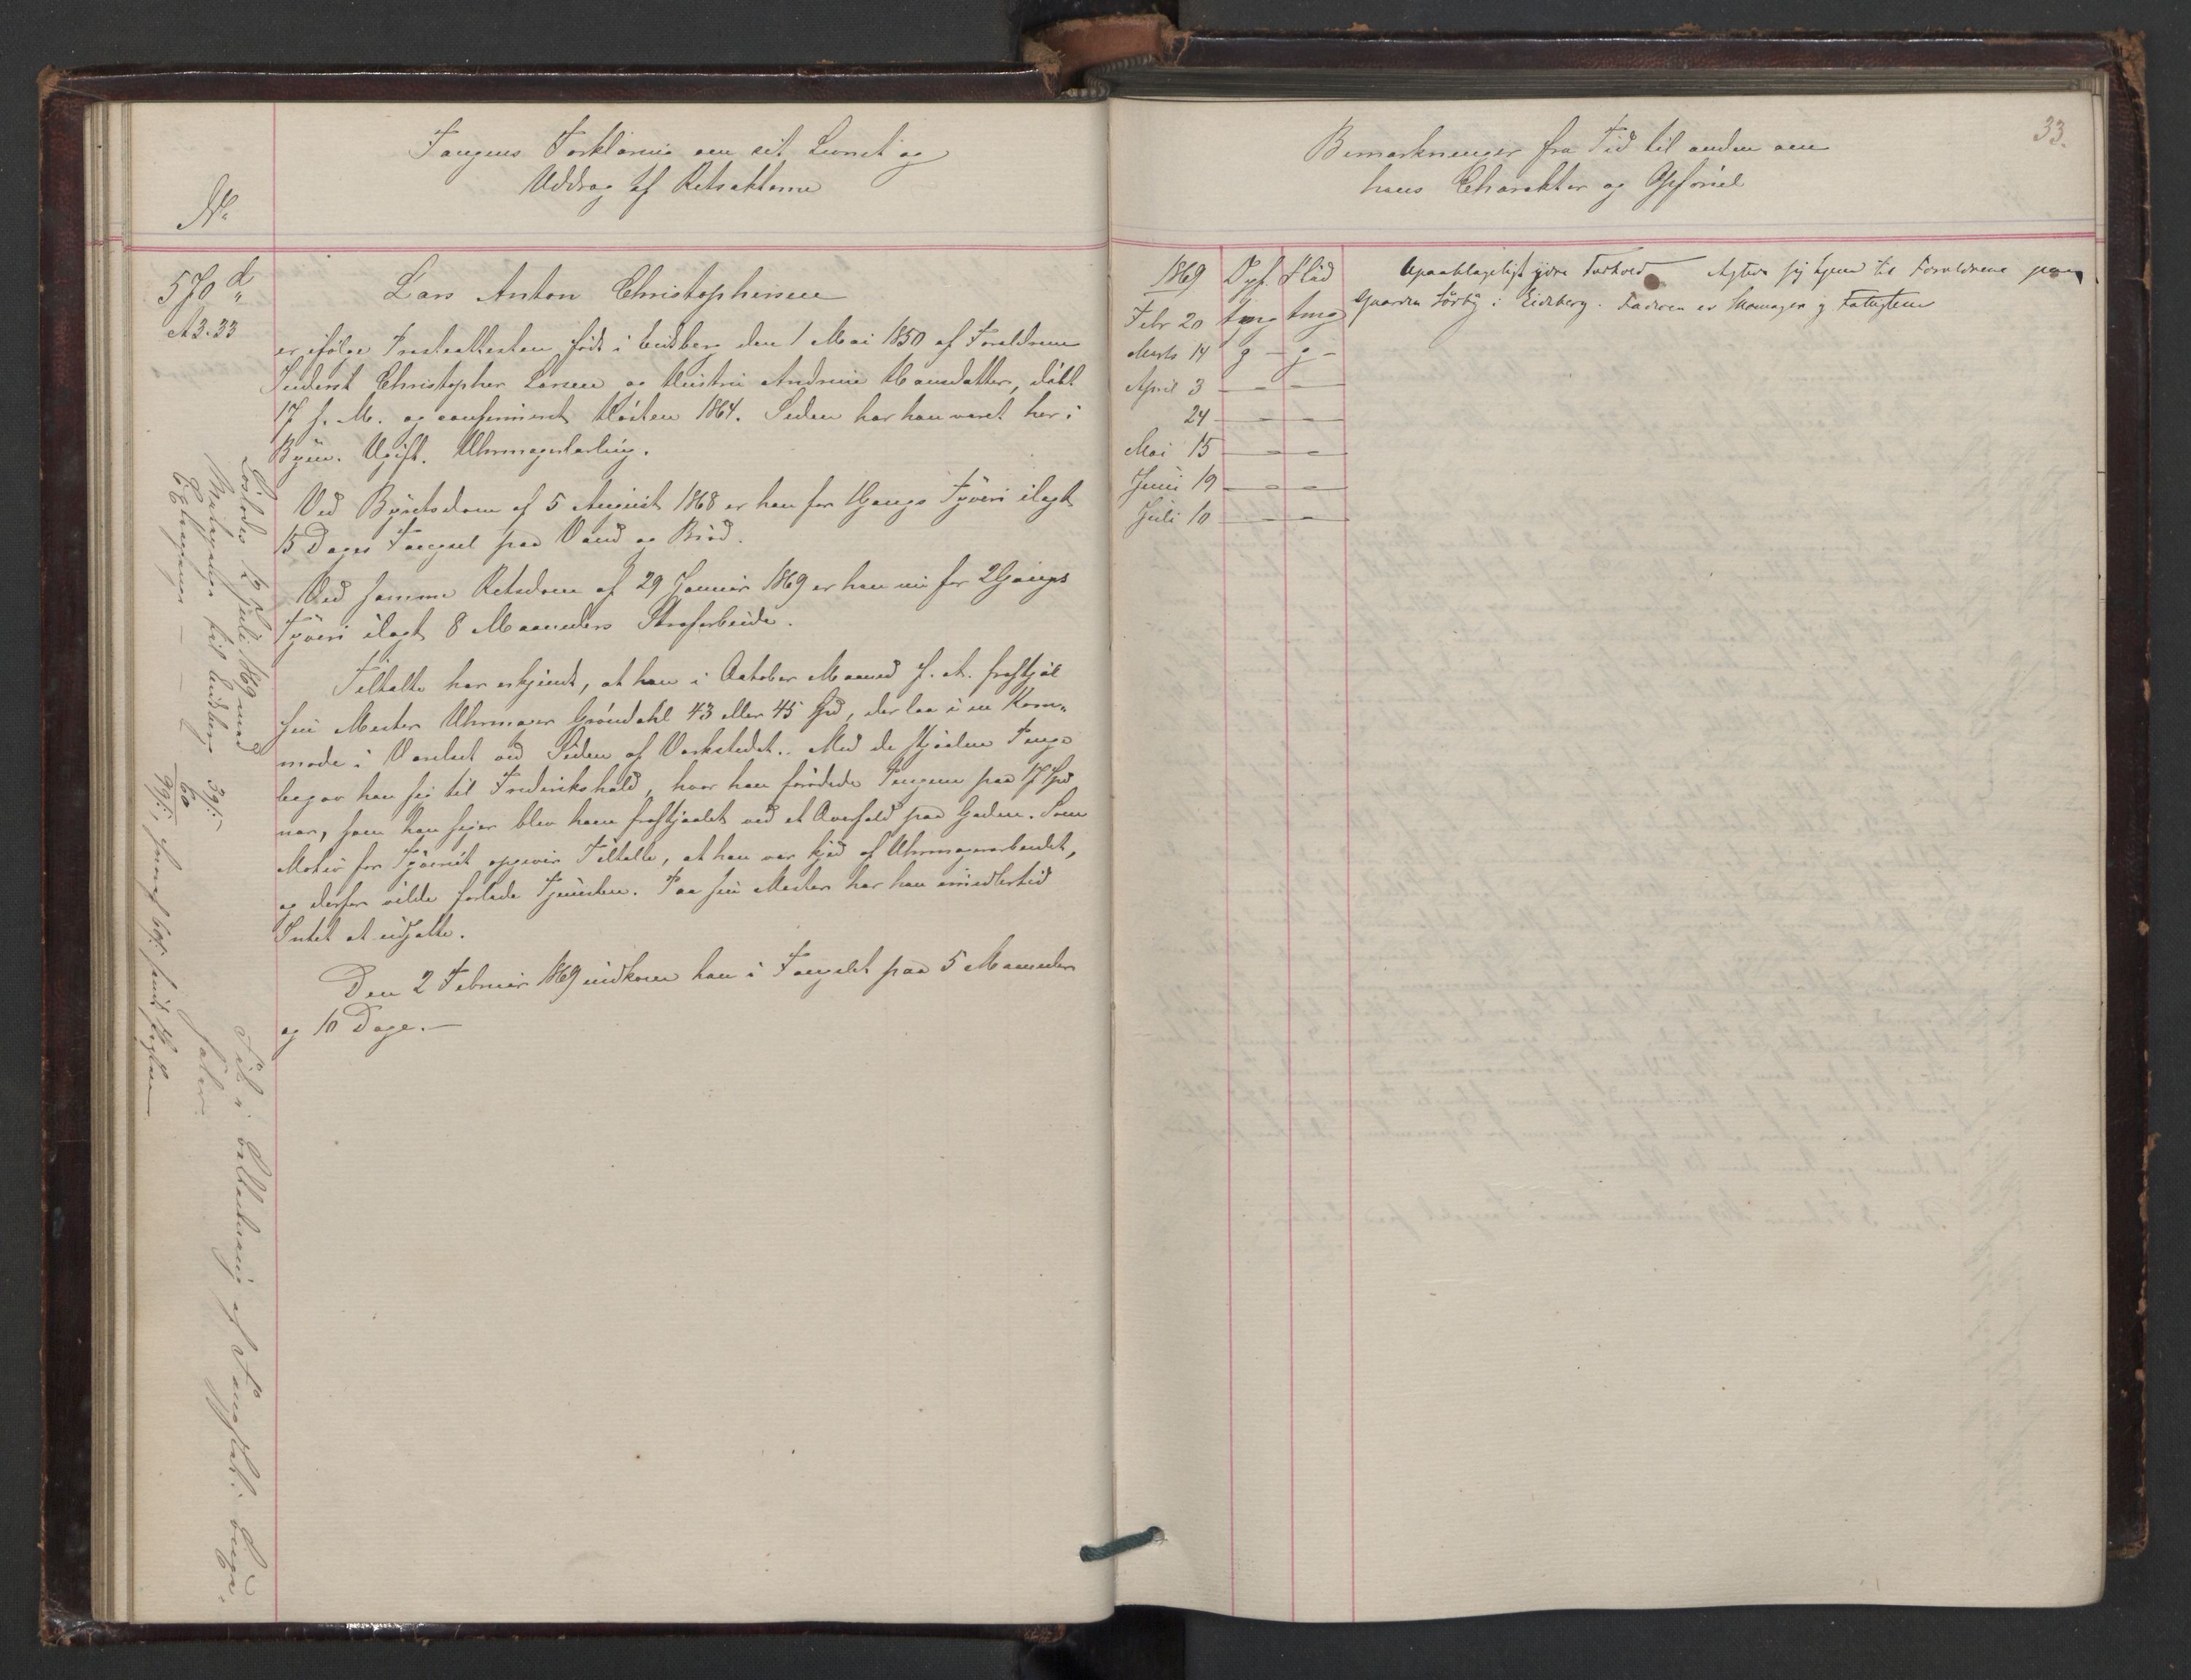 Fangens Forklaring om sit Levnet og
Uddrag af Retsakterne
No
570 d
A 3.33
Lars Anton Christophersen
er ifølge Præsteattesten født i Eidsberg den 1 Mai 1850 af Forældrene
Inderst Christopher Larsen og Hustru Andrine Hansdatter, døbt
17 s. M. og confirmeret Høsten 1864. Siden har han været her i
Byen. Ugift. Uhrmagerlærling.
Ved Byretsdom af 5 August 1868 er han for 1 Gangs Tyveri ilagt
15 Dages Fængsel paa Vand og Brød.
Ved samme Retsdom af 29 Januar 1869 er han nu for 2 Gangs
Tyveri ilagt 8 Maaneders Strafarbeide.
Tiltalte har erkjendt, at han i October Maaned f. A. frastjal
sin Mester Uhrmager Grøndahl 43 eller 45 Spd, der laa i en Kom-
mode i Værelset ved Siden af Værkstedet. Med de stjaalne Penge
begav han sig til Frederikshald, hvor han forødede Pengene paa 17 Spd
nær, som han siger blev ham frastjaalet ved et Overfald paa Gaden. Som
Motiv for Tyveriet opgiver Tiltalte, at han var kjed af Uhrmagerarbeidet,
og derfor vilde forlade Tjenesten. Paa sin Mester har han imidlertid
Intet at udsætte.
Den 2 Februar 1869 indkom han i Fængslet paa 5 Maaneder
og 10 Dage.—
Løslodes 12 Juli 1869 med
til Eidsberg 39 ß
Extrapenge — — 60
99 ß,
Til i Beklædning af Fængslet:
Bemærkninger fra Tid til anden om
hans Charakter og Opførsel
33.
1869 Opf. Flid
Febr 20 tmg tmg
Marts 14 g — g —
April 3 — —
24 — —
Mai 15 — —
Juni 19 — —
Juli 10 — —
Upaaklageligt ydre Forhold Agter sig hjem til Forældrene paa
Gaarden i Eidsberg. Faderen er Skomager og